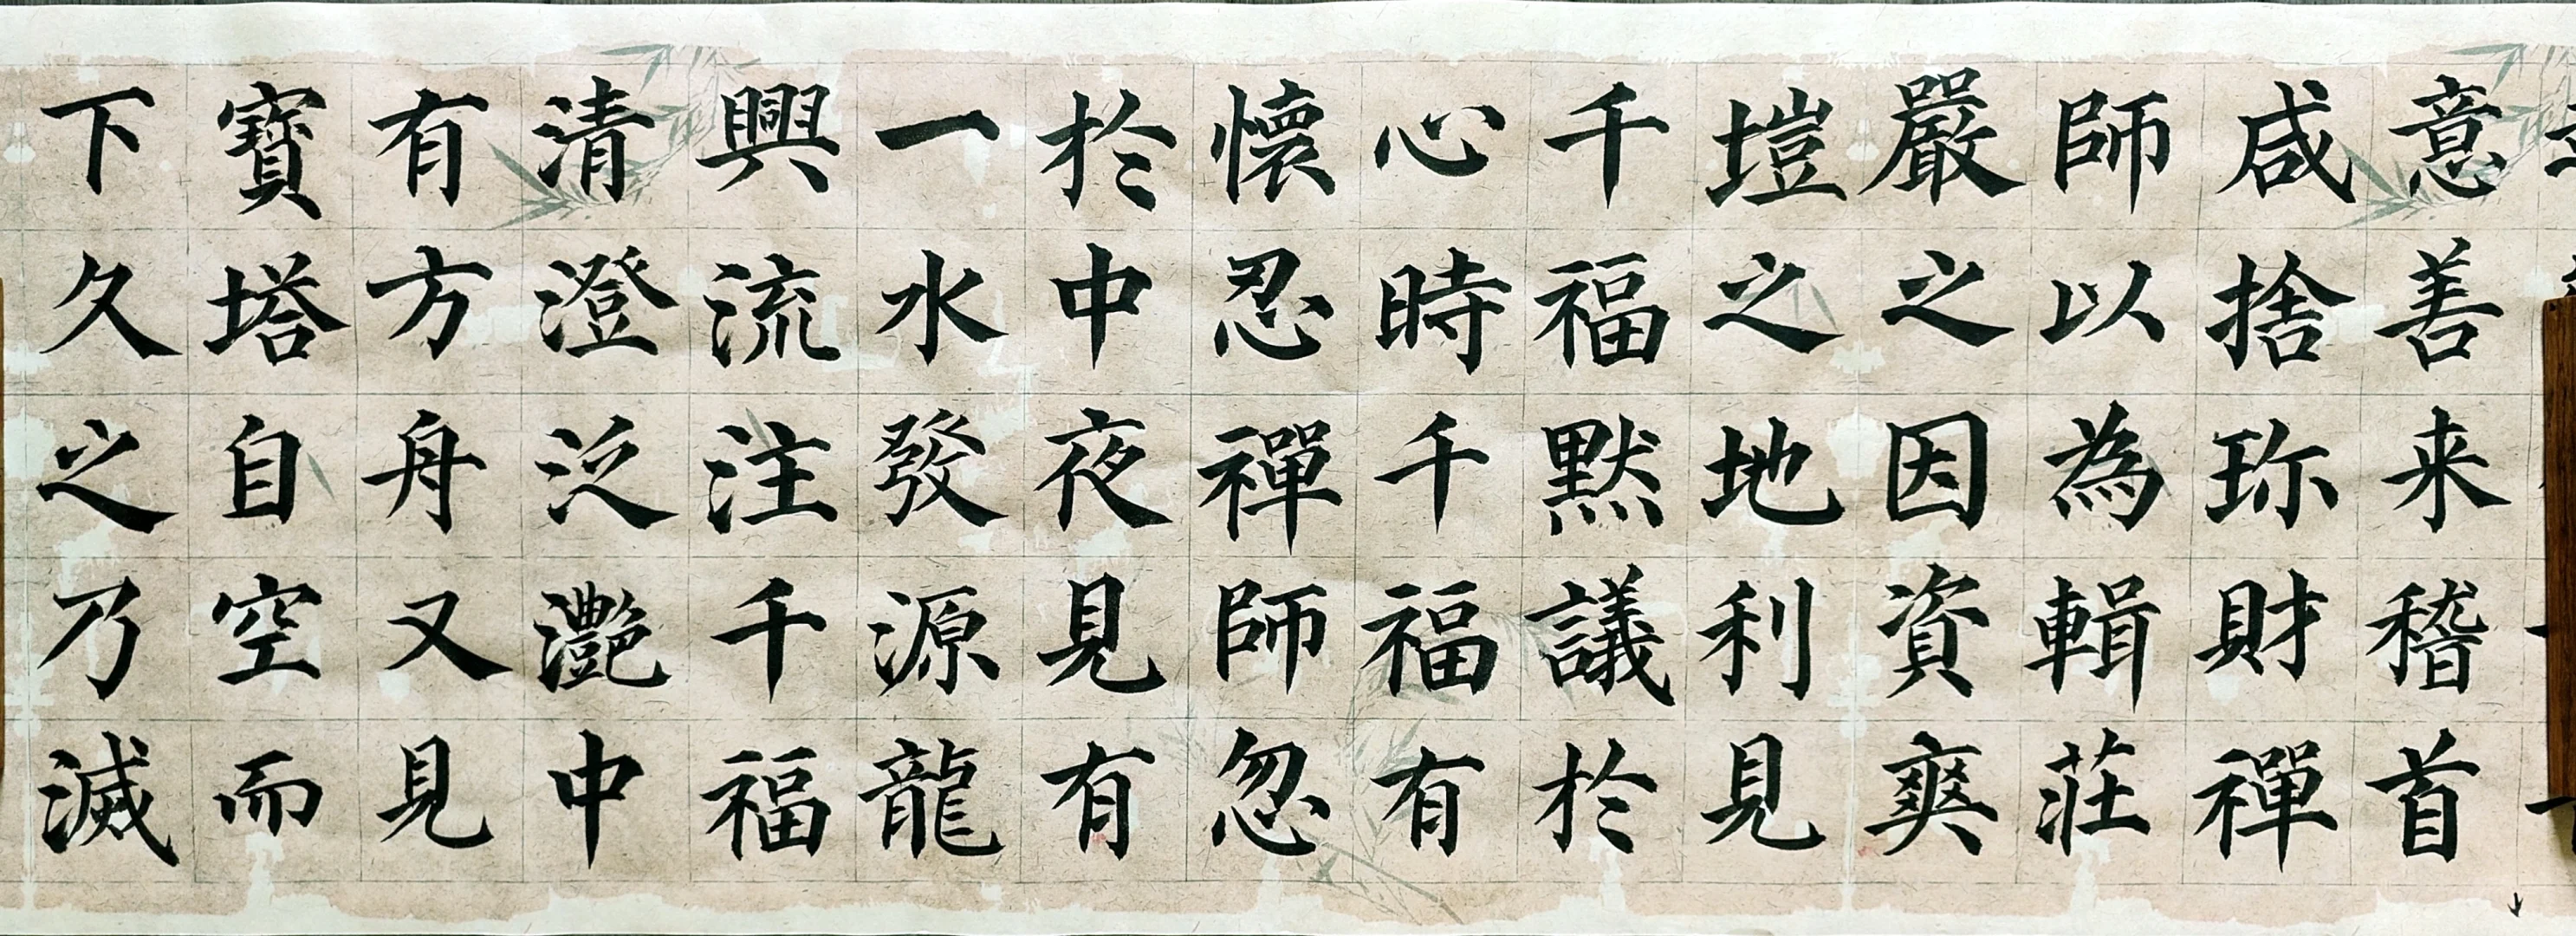 意善来稽首
咸捨珎財禪
師以為輯莊
嚴之因資爽
塏之地利見
千福默議於
心時千福有
懷忍禪師忽
於中夜見有
一水發源龍
興流注千福
清澄泛灔中
有方舟又見
寶塔自空而
下久之乃滅